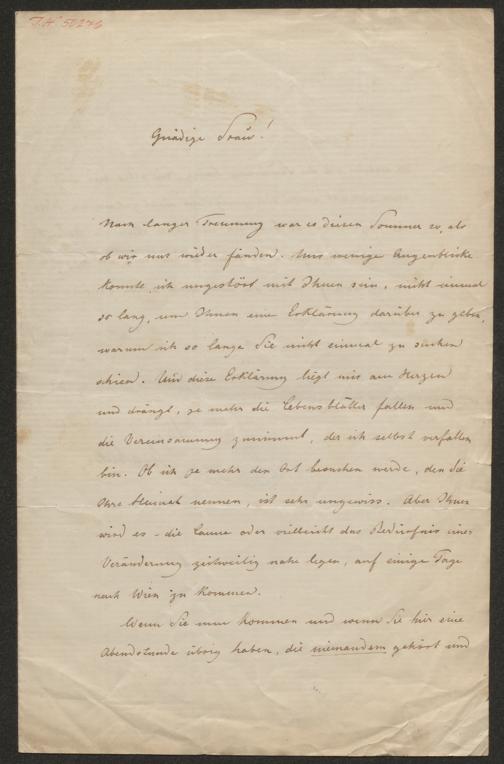 Gnädige Frau!
Nach langer Trennung war es diesen Sommer so, als
ob wir uns wieder fänden. Nur wenige Augenblicke
konnte ich ungestört mit Ihnen sein, nicht einmal
so lang, um Ihnen eine Erklärung darüber zu geben,
warum ich so lange Sie nicht einmal zu suchen
schien. Und diese Erklärung liegt mir am Herzen
und drängt, je mehr die Lebensblätter fallen und
die Vereinsamung zunimmt, der ich selbst verfallen
bin. Ob ich je mehr den Ort besuchen werde, den Sie
Ihre Heimat nennen, ist sehr ungewiss. Aber Ihnen
wird es - die Laune oder vielleicht das Bedürfnis einer
Veränderung zeitweilig nahe legen, auf einige Tage
nach Wien zu kommen.
Wenn Sie nun kommen und wenn Sie hier eine
Abendstunde übrig haben, die niemandem gehört und